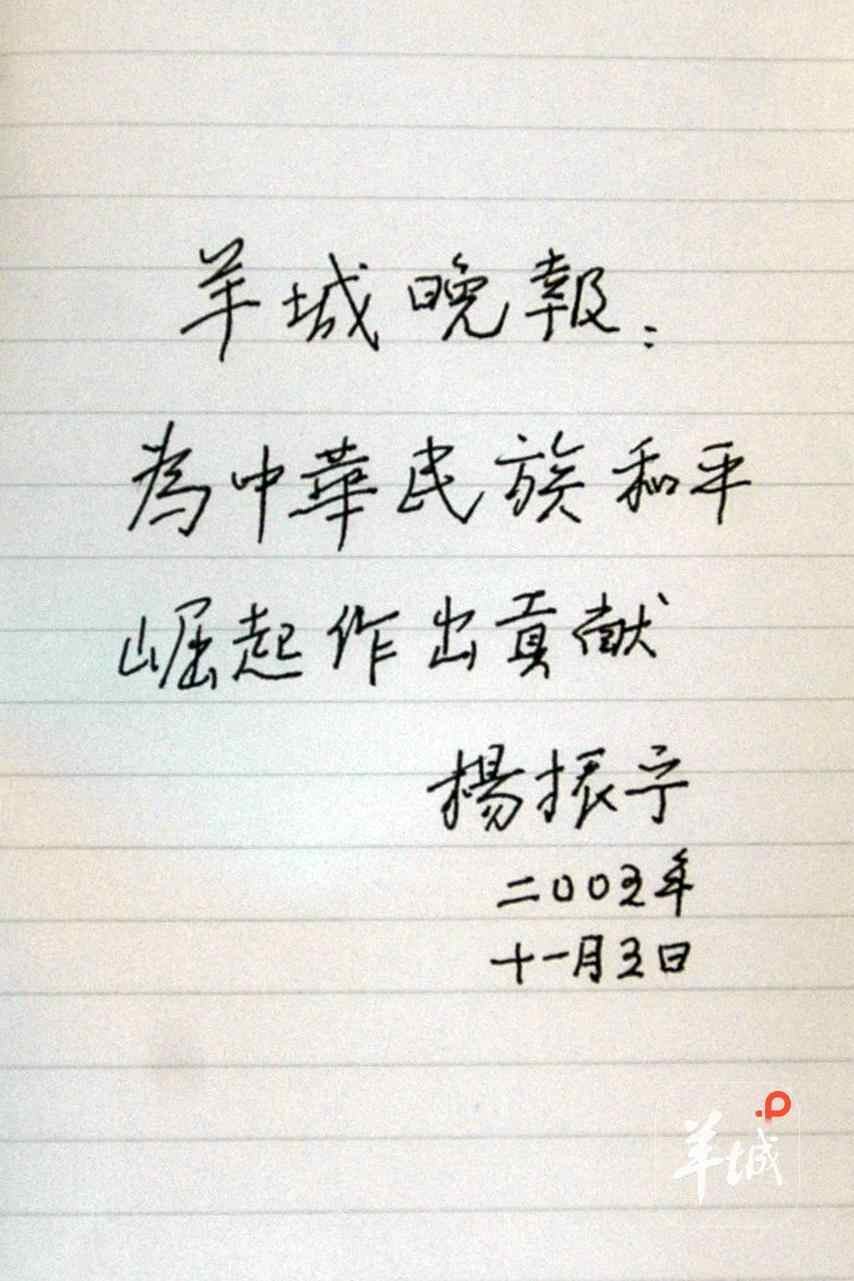 羊城晚報：
為中華民族和平
崛起作出貢献
楊振宁
二00五年
十一月五日
羊城